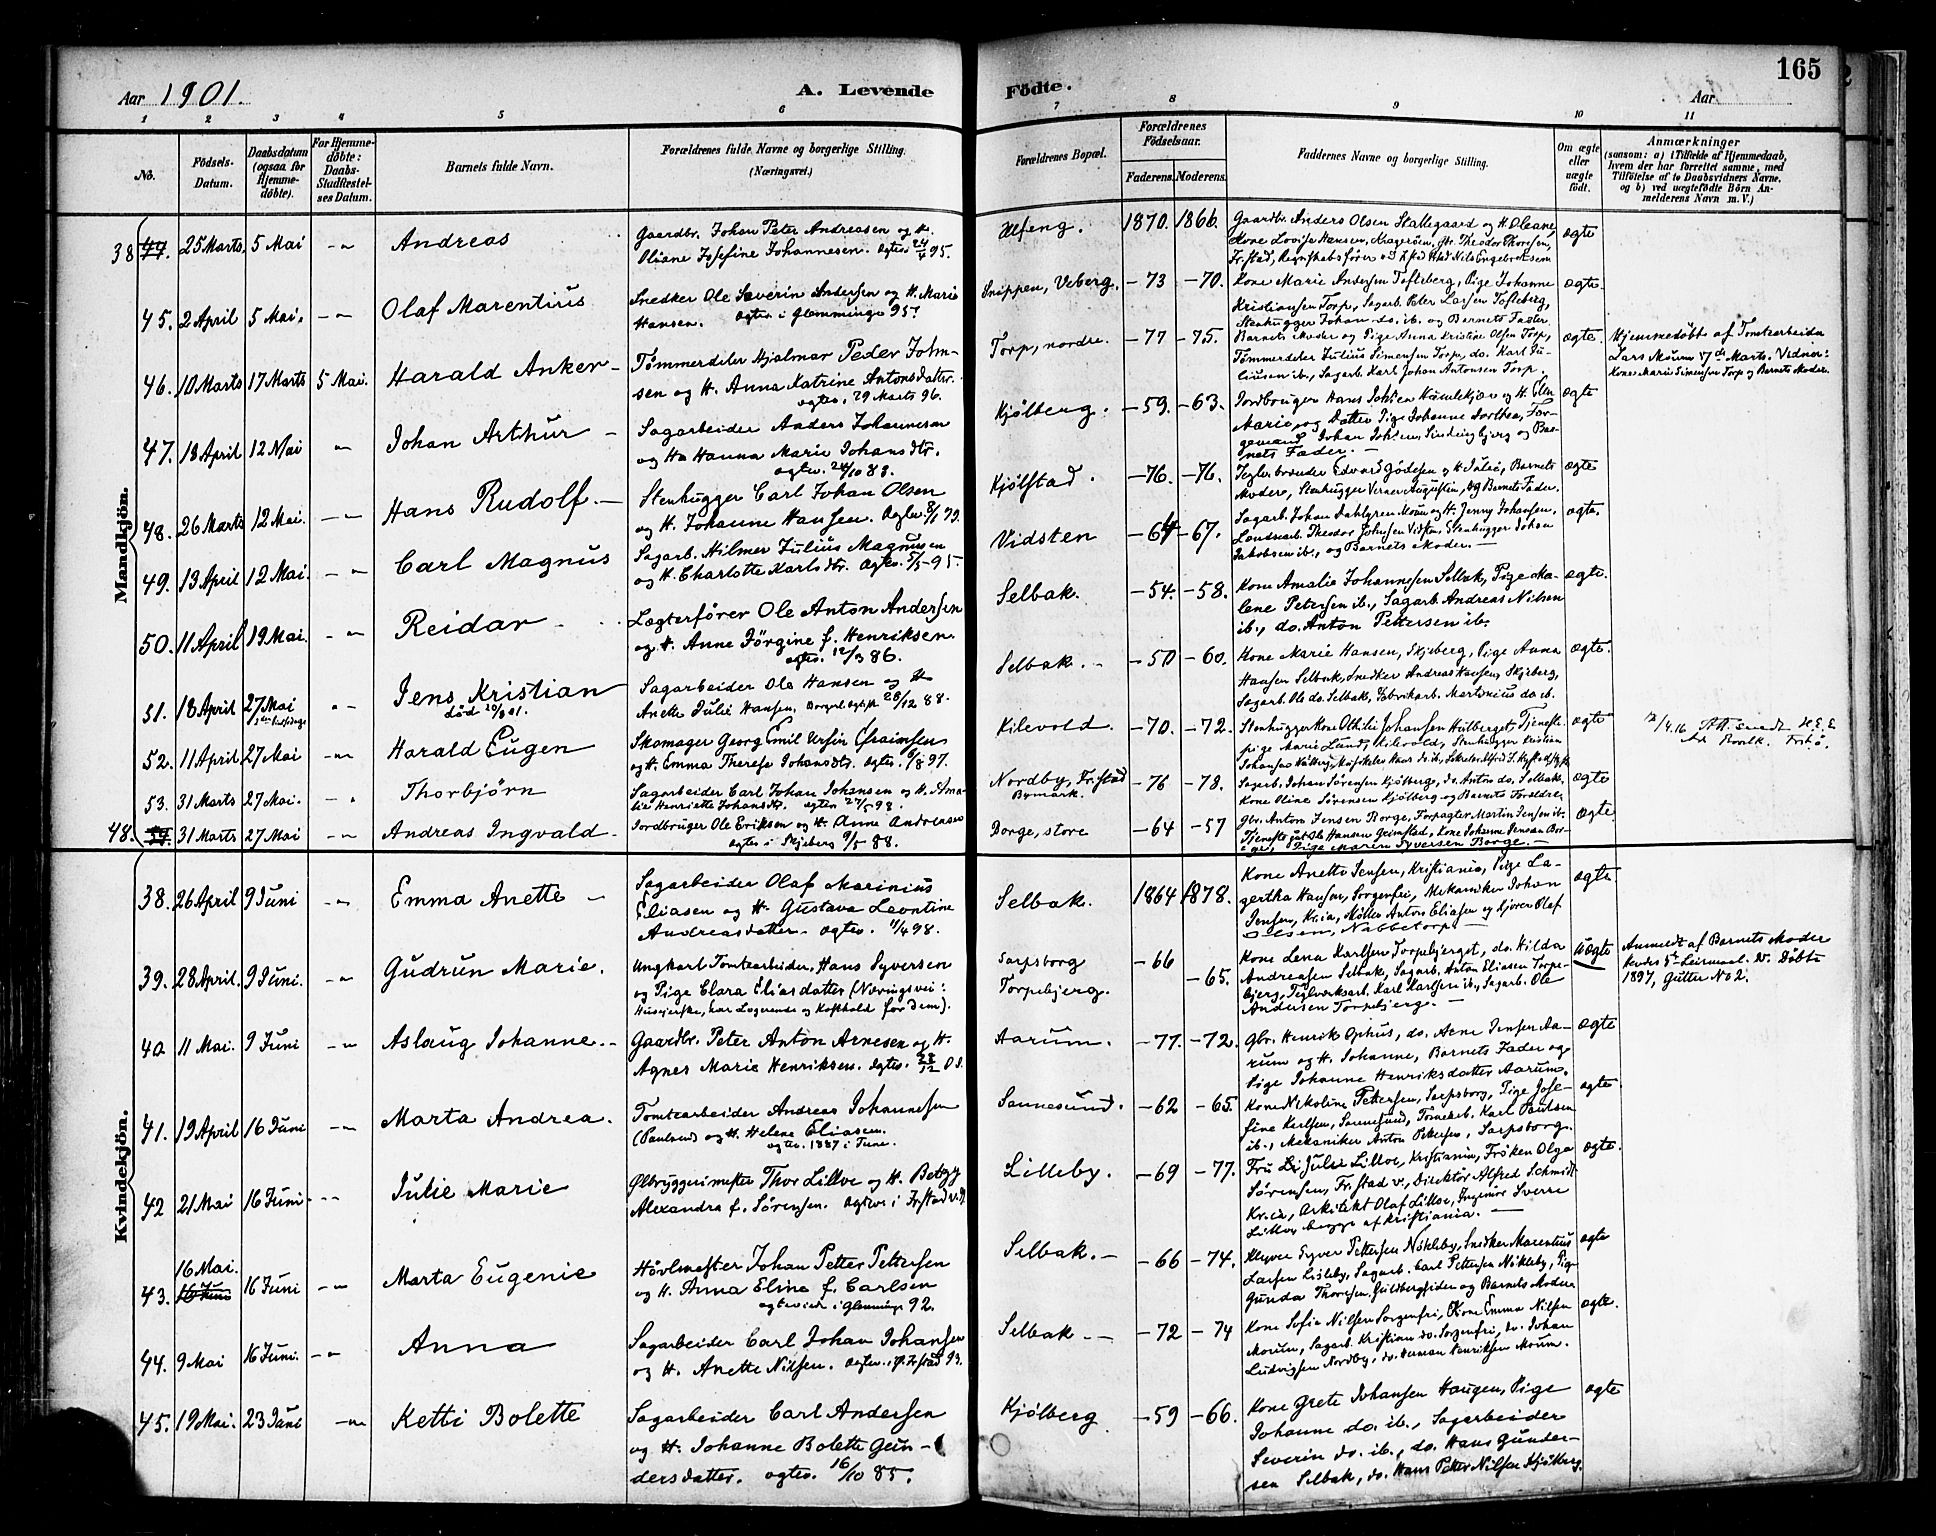 165
Aar 1901.
A. Levende Födte.
Aar
1 2 3 4 5 6 7 8 9 10 11
No.
Födsels-Datum.
Daabsdatum (ogsaa for Hjemme-döbte).
For Hjemme-döbte: Daabs-Stadfæstel-ses Datum.
Barnets fulde Navn.
Forældrenes fulde Navne og borgerlige Stilling. (Næringsvei.)
Forældrenes Bopæl.
Forældrenes Födselsaar.
Faderens. Moderens.
Faddernes Navne og borgerlige Stilling.
Om ægte eller uægte födt.
Anmærkninger
(saasom: a) i Tilfælde af Hjemmedaab,
hvem der har forrettet samme, med
Tilföielse af to Daabsvidners Navne,
og b) ved uægtefödte Börn An-
melderens Navn m. V.)
Mandkjön.
38 44. 25 Marts 5 Mai Andreas
Gaardbr. Johan Peter Andreasen og H.
Oliane Josefine Johannesen. Ægtev. 95.
Ulfeng. 1870. 1866.
Gaardbr. Anders Olsen Stallegaard og H. Oleane,
Kone Lovise Hansen, Kragerøen, Theodor Thoresen,
ægte
45. 2 April 5 Mai. Olaf Marentius
Snedker Ole Severin Andersen og H. Marie
Hansen. Ægtev. i Glemminge 95.
Snippen, Veberg. -73 -70.
Kone Marie Andersen Tofteberg, Pige Johanne
Kristiansen Torp, Sagarb. Peter Larsen Tofteberg,
Stenhugger Johan do. ib. og Barnets Fader.
ægte.
46. 10 Marts 17 Marts 5 Mai. Harald Anker
Tømmerdeler Hjalmar Peder John-
sen og H. Anna Katrine Antonsdatter.
Ægtev. 29 Marts 96.
Torp, nordre. -77 -75.
Barnets Moder og Pige Anna Kristine Olsen Torp,
Tømmerdeler Julius Simensen Torp, do. Karl Ju-
liusen ib., Sagarb. Karl Johan Antonsen Torp.
ægte.
Hjemmedøbt af Tomtearbeider
Lars Moum 17de Marts. Vidner:
Kone Marie Simensen Torp og Barnets Moder.
47. 18 April 12 Mai Johan Arthur
Sagarbeider Anders Johannesen
og H. Hanna Marie Johansdtr.
Ægtev. 28/10 88.
Kjølberg. -59. -63.
Jordbruger Hans og H. Elen
Marie og Datter Pige Johanne Dorthea, For-
nets Fader.
ægte
48. 26 Marts 12 Mai. Hans Rudolf
Stenhugger Carl Johan Olsen
og H. Johanne Hansen. Ægtev. 8/1 99.
Kjølstad. -76. -76.
Moder, Stenhugger Verner Augustin, og Barnets Fader.
ægte
49. 13 April 12 Mai. Carl Magnus
Sagarb. Hilmer Julius Magnusen
og H. Charlotte Karlsdtr. Ægtev. 5/5 95.
Vidsten -64 -67.
Sagarb. Johan Dahlgren Moum og H. Jenny Johansen,
Landarb. Theodor Johnsen Vidsten, Stenhugger Johan
Jakobsen ib., og Barnets Moder.
ægte.
50. 11 April 19 Mai. Reidar
Lægterfører Ole Anton Andersen
og H. Anne Jörgine f. Henriksen.
Ægtev. 12/3 86.
Selbak. -54. -58.
Kone Amalie Johannesen Selbak, Pige Ma-
lene Petersen ib., Sagarb. Andreas Nilsen
ib., do. Anton Pettersen ib.
ægte.
51. 18 April 27 Mai Jens Kristian
død 20/8 01.
Sagarbeider Ole Hansen og H.
Anette Julie Hansen, 28/12 88.
Selbak. -50 -60.
Kone Marie Hansen, Skjeberg, Pige Anna
Hansen Selbak, Snedker Andreas Hansen, Skjeberg,
Sagarb. Ole do. Selbak, Fabrikarb. Martinius do. ib.
ægte.
52. 11 April 27 Mai Harald Eugen
Skomager Georg Emil Ursin Efraimsen
og H. Emma Therese Johansdtr. Ægtev. 6/8 97.
Kilevold. -70. -72.
Stenhuggerkone Othilie Johansen Hulberget, Tjeneste-
pige Marie Lund, Kilevold, Stenhugger Kristian
ægte
53. 31 Marts 27 Mai. Thorbjørn
Sagarbeider Carl Johan Johansen og H. Ama-
lie Henriette Johansdtr. Ægtev. 27/5 98.
Nordby, Fr.stad Bymark. -76 -78.
Sagarb. Johan Sørensen Kjølberg, do. Anton do. Selbak,
Kone Oline Sørensen Kjølberg og Barnets Forældre.
ægte
48. 54. 31 Marts 27 Mai Andreas Ingvald
Jordbruger Ole Eriksen og H. Anne Andreasen
Ægtev. i Skjeberg 9/5 88.
Borge, store -64 -57
Gbr. Anton Jensen Borge, Forpagter Martin Jensen ib.
Tjenestegut Ole Hansen Grimstad, Kone Johanne Jensen Bor-
ge, Pige Maren Syversen Borge.
ægte.
Kvindekjön.
38. 26 April 9 Juni Emma Anette
Sagarbeider Olaf Marinius
Eliasen og H. Gustava Leontine
Andreasdatter. Ægtev. 11/4 98.
Selbak. 1864 1878.
Kone Anette Jensen, Kristiania, Pige La-
gertha Hansen, Sorgenfri, Mekaniker Johan
Jensen, Kr.ia, Møller Anton Eliasen og Kjører Olaf
Olsen, Nabbetorp.
ægte
39. 28 April. 9 Juni. Gudrun Marie.
Ungkarl Tomtearbeider, Hans Syversen
og Pige Clara Eliasdatter (Næringsvei:
Huseierske, har Logerende og Kosthold for dem).
Sarpsborg -66
Torpebjerg. -65.
Kone Lena Karlsen Torpebjerget, do. Hilda
Andreasen Selbak, Sagarb. Anton Eliasen Torpe-
bjerg, Teglværksarb. Karl Karlsen ib., Sagarb. Ole
Andersen Torpebjerg.
uægte
Anmeldt af Barnets Moder
hvdes 5te Leiermaal. Døbte
1897, Gutter No 2.
40 11 Mai. 9 Juni Aslaug Johanne.
Gaardbr. Peter Anton Arnesen og H.
Agnes Marie Henriksen. Ægtev. 28/12 00.
Aarum. -77. -72.
Gbr. Henrik Ophus, do. Arne Jensen Aa-
rum og H. Johanne, Barnets Fader og
Pige Johanne Henriksdatter Aarum.
ægte
41. 19 April 16 Juni Marta Andrea.
Tomtearbeider Andreas Johannesen
(Paulsrud) og H. Helene Eliasen.
Ægtev. 1887 i Tune.
Sannesund. -62 -65.
Kone Nikoline Pettersen, Sarpsborg, Pige Jose-
fine Karlsen, Sannesund, Tømrerarb. Karl Paulsen
ib., Mekaniker Anton Pettersen, Sarpsborg.
ægte
42 21 Mai 16 Juni Julie Marie
Ølbryggerimester Thor Lilloe og H. Betzy
Alexandra f. Sørensen. Ægtev. i Fr.stad
Lilleby. -69 -77.
Fru Julie Lilloe, Kristiania, Frøken Olga
Sørensen, Fr.stad v., Direktør Alfred Schmidt
Kr.ia, Arkitekt Olaf Lilloe, Ingeniør Sverre
Lilloe, begge af Kristiania.
ægte.
43. 16 Mai. 16 Juni 16 Juni Marta Eugenie
Høvlmester Johan Petter Pettersen
og H. Anna Eline f. Carlsen
Ægteviet i Glemminge 92.
Selbak. -66 -74.
Kløyver Syver Pettersen Nökleby, Snedker Marentius
Larsen Lisleby, Sagarb. Carl Pettersen Nökleby, Pige
Gunda Thoresen, Guldbergsiden og Barnets Moder
ægte
44. 9 Mai 16 Juni. Anna
Sagarbeider Carl Johan Johansen
og H. Anette Nilsen. Ægtev. i Fr.stad 93.
Selbak -72 -74
Kone Sofie Nilsen Sorgenfri, Kone Emma Nilsen
Moum, Sagarb. Kristian do. Sorgenfri, do. Johan
Ludvigsen Nordby, do. Herman Henriksen Moum.
ægte.
45. 19 Mai. 23 Juni Ketti Bolette
Sagarbeider Carl Andersen
og H. Johanne Bolette Gun-
dersdatter. Ægtev. 16/10 85.
Kjølberg -59 -66.
Kone Grete Johansen Haugen, Pige
Johanne do. ib., Sagarbeider
Severin do. ib., do. Hans Gunder-
sen Selbak, do. Hans Petter Nilsen Kjølberg.
ægte